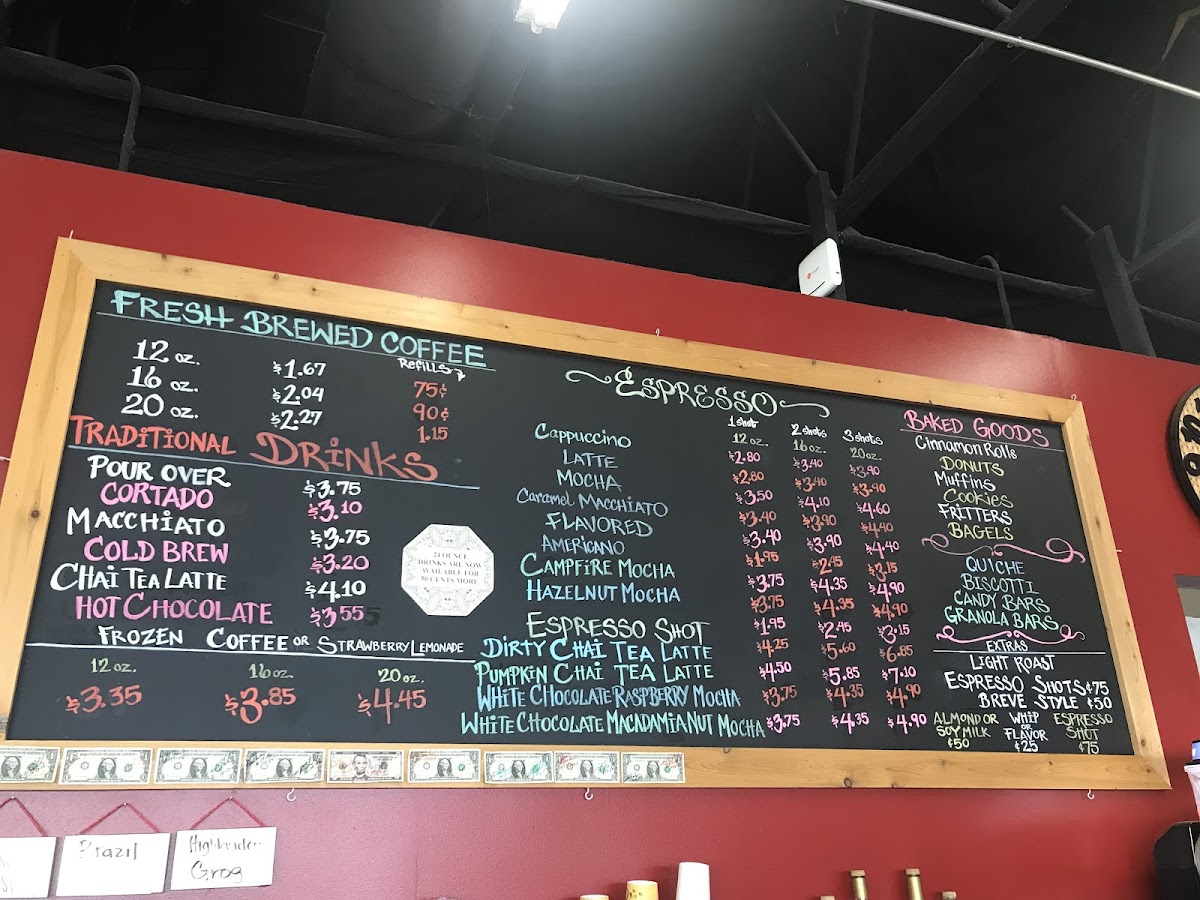 FRESH BREWED COFFEE
Refills
12 oz. $1.67 75¢
16 oz. $2.04 90¢
20 oz. $2.27 1.15
TRADITIONAL DRINKS
POUR OVER $3.75
CORTADO $3.10
MACCHIATO $3.75
COLD BREW $3.20
CHAI TEA LATTE $4.10
HOT CHOCOLATE $3.55
24 OUNCE
DRINKS ARE NOW
AVAILABLE FOR
50 CENTS MORE
FROZEN COFFEE OR STRAWBERRY LEMONADE
12 oz. 16 oz. 20 oz.
$3.35 $3.85 $4.45
ESPRESSO
1 shot 2 shots 3 shots
12 oz. 16 oz. 20 oz.
Cappuccino $2.80 $3.40 $3.90
LATTE $2.80 $3.40 $3.90
MOCHA $3.50 $4.10 $4.60
Caramel Macchiato $3.40 $3.90 $4.40
FLAVORED $3.40 $3.90 $4.40
AMERICANO $1.95 $2.45 $3.15
CAMPFIRE MOCHA $3.75 $4.35 $4.90
HAZELNUT MOCHA $3.75 $4.35 $4.90
ESPRESSO SHOT $1.95 $2.45 $3.15
DIRTY CHAI TEA LATTE $4.25 $5.60 $6.85
PUMPKIN CHAI TEA LATTE $4.50 $5.85 $7.10
WHITE CHOCOLATE RASPBERRY MOCHA $3.75 $4.35 $4.90
WHITE CHOCOLATE MACADAMIA NUT MOCHA $3.75 $4.35 $4.90
BAKED GOODS
Cinnamon Rolls
DONUTS
Muffins
Cookies
FRITTERS
BAGELS
QUICHE
BISCOTTI
CANDY BARS
GRANOLA BARS
EXTRAS
LIGHT ROAST
ESPRESSO SHOTS ¢75
BREVE STYLE ¢50
ALMOND OR
SOY MILK
¢50
WHIP
OR
FLAVOR
¢25
ESPRESSO
SHOT
¢75
Brazil
Highlander
Grog